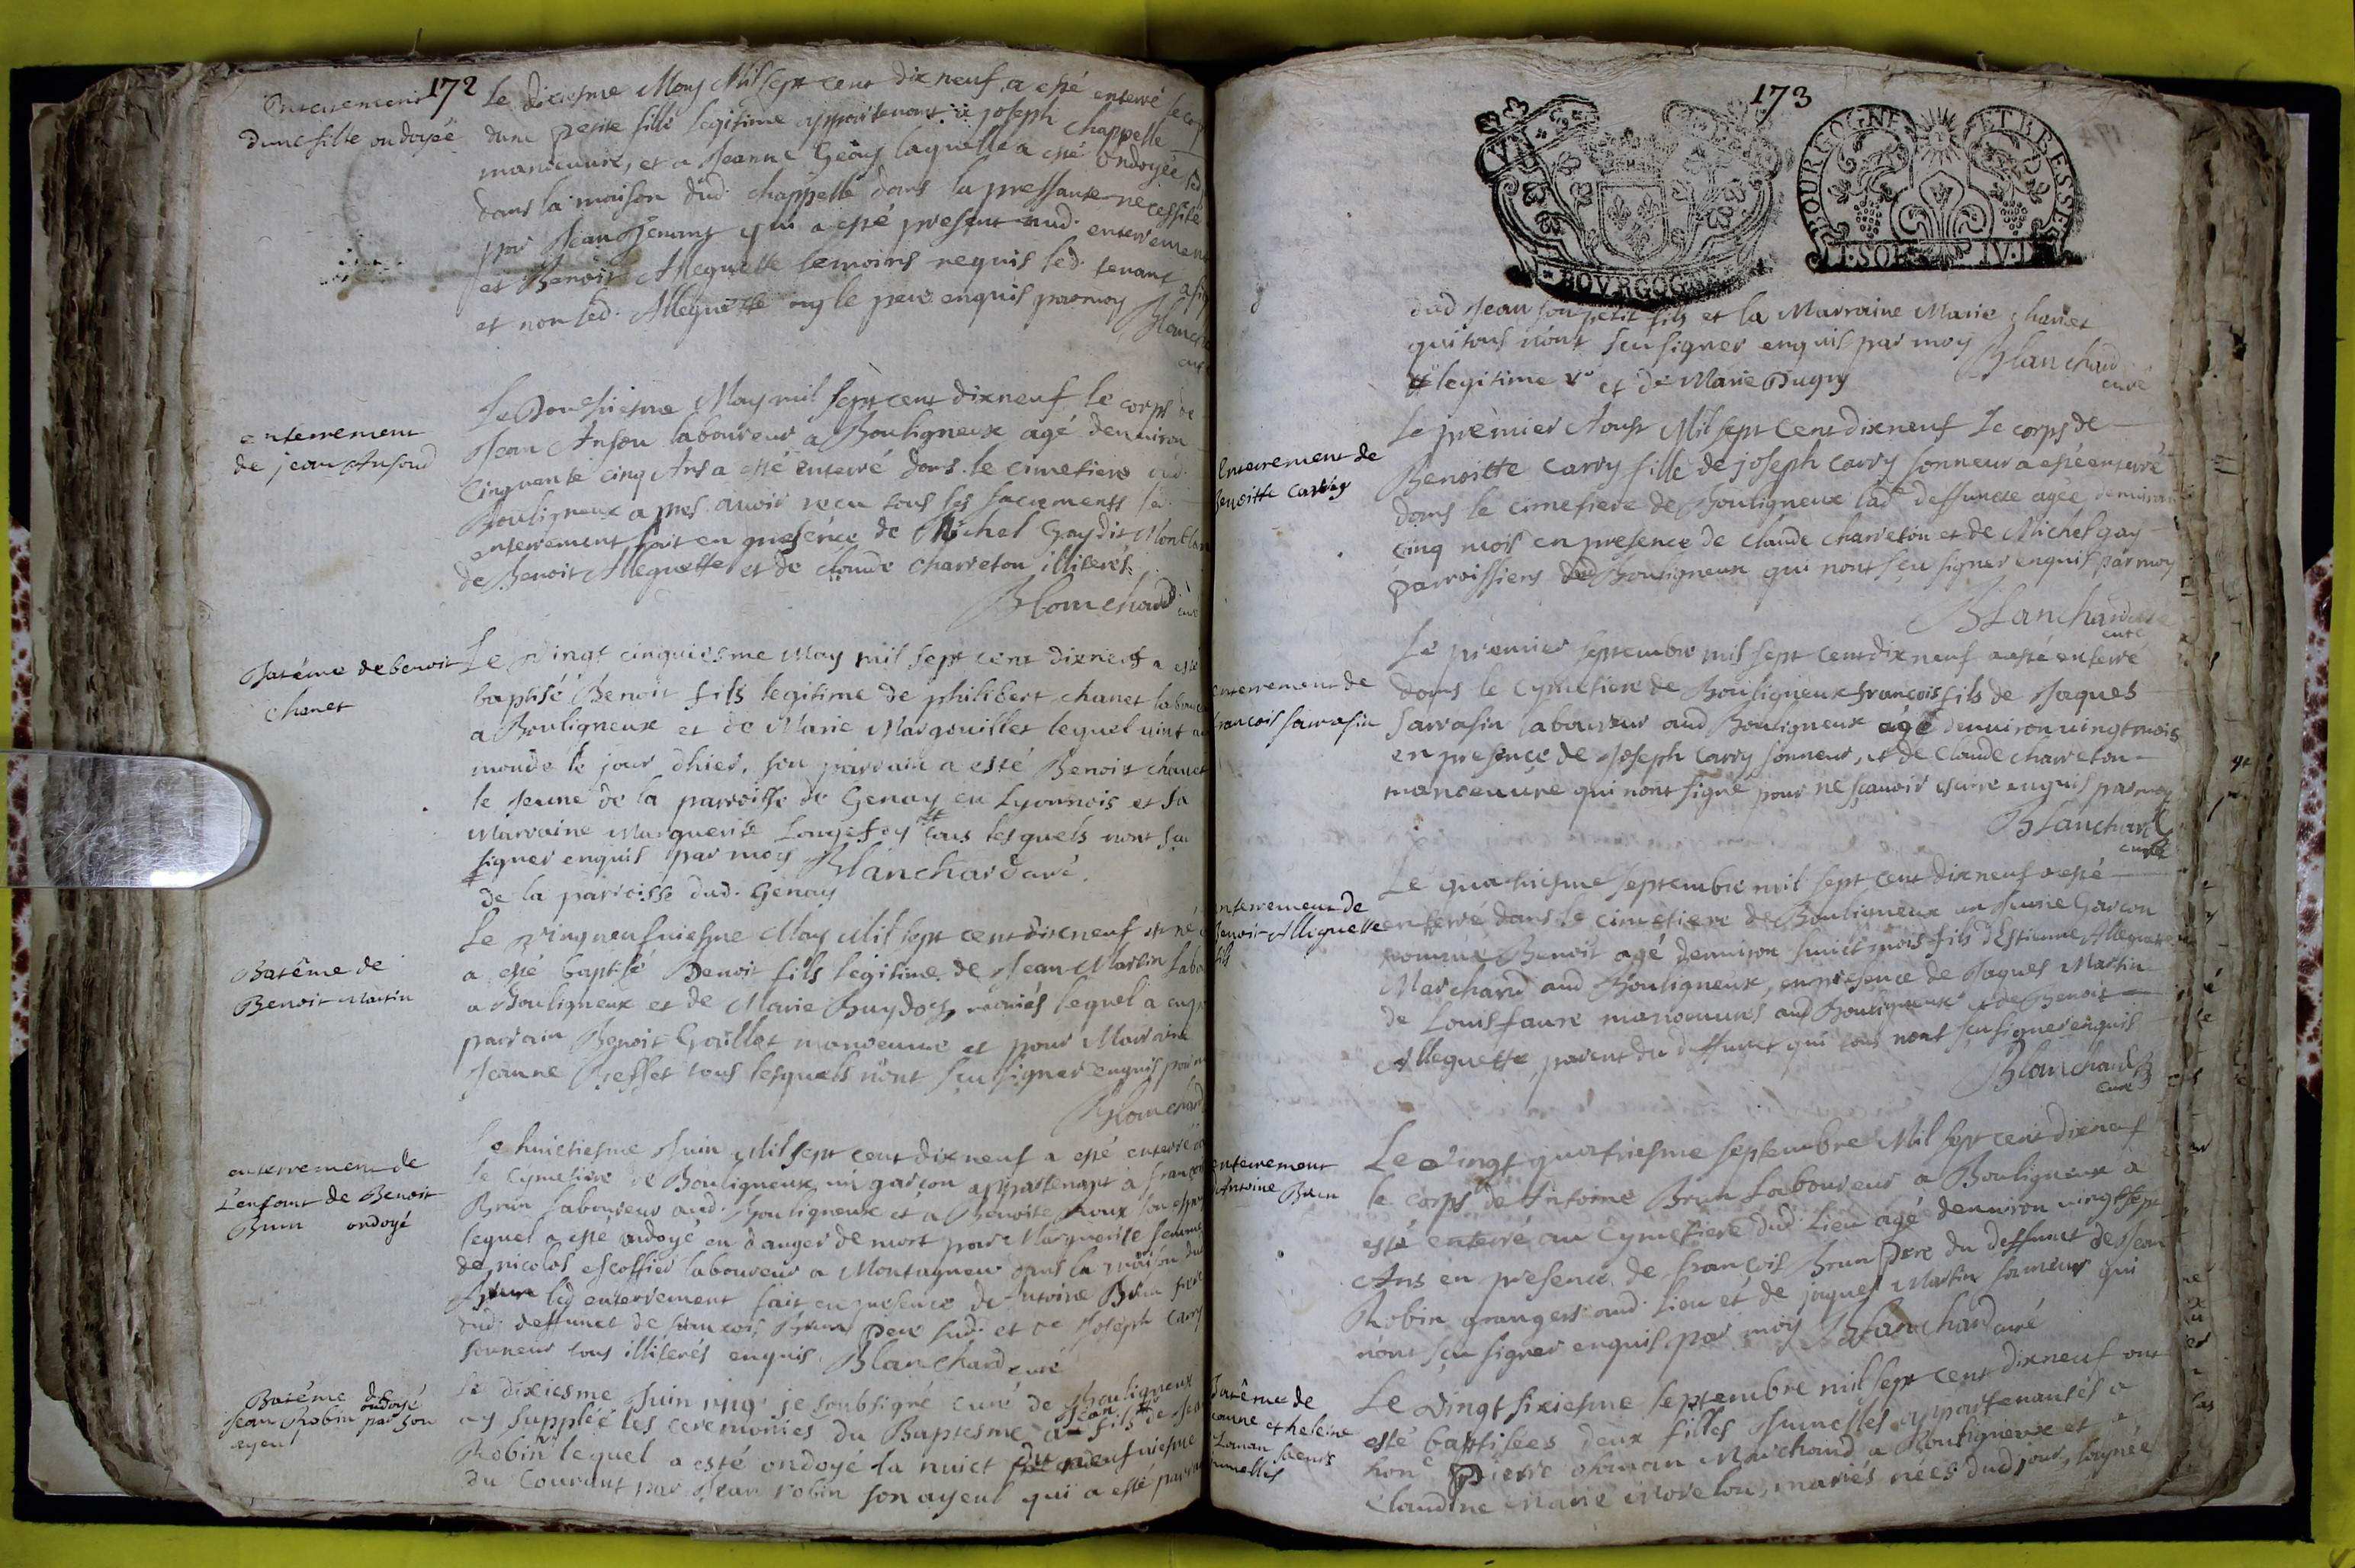 172
Enterrement
d'une fille ondoyée
Le dixiesme May Mil sept cent dix neuf a esté enterré le corp
dune petite fille legitime appartenant a joseph chappelle
manoeuvre, et a Jeanne Geay laquelle a esté ondoyée
dans la maison dud. chappelle dans la pressante necessité
par Jean qui a esté present aud. enterrement
et Benoit Alleguette temoins requis led. tenant a sig
et non led. Alleguette ny le pere enquis par moy
Blanchard
curé
enterrement
de jean Ansoud
Le Douzhiesme May mil sept cent dix neuf le corps de
Jean Ansou laboureur a Bouligneux agé denviron
Cinquante cinq Ans a esté enterré dans le cimetiere dud.
Bouligneux apres avoir receu tous les sacrements le
enterrement fait en presence de Michel Gay dit Montblan
de Benoit Alleguette et de claude charreton illiterés
Blanchard curé
Batéme de benoit
chanet
Le Vingt cinquiesme May mil sept cent dix neuf a esté
baptisé Benoit fils legitime de philibert chanet laboureu
a Bouligneux et de Marie Margouillet lequel vint au
monde le jour dhier, son parrain a esté Benoit chanet
le Jeune de la parroisse de Genay en Lyonnois et sa
Marraine Marguerite Longefoy # tous lesquels nont scu
signer enquis par moy Blanchard curé.
# de la parroisse dud. Genay
Batême de
Benoit Martin
Le Vingneufviesme May Mil sept cent dix neuf est né
a esté baptisé Benoit fils legitime de Jean Martin Labo
a Bouligneux et de Marie Buydos, mariés lequel a eu p
parrain Benoit Gaillet manoeuvre et pour Marraine
Jeanne Beffet tous lesquels n'ont sçu signer enquis par m
Blanchard
enterrement de
L'enfant de Benoit
Brun ondoyé
Le huictiesme Juin Mil sept cent dix neuf a esté enterré da
le Cymetiere de Bouligneux un garçon appartenant a françois
Brun laboureur aud. Bouligneux et a Benoite Roux son espou
lequel a esté ondoyé en danger de mort par Marguerite femme
de nicolas escoffier laboureur a Montagneu dans la maison dud
Brun led enterrement fait en presence de Antoine Brun frere
dud. deffunct de francois Brun pere dud. et de Joseph Carry
sonneur tous illiterés enquis Blanchard curé
Batéme de
Jean Robin ondoyé par son
ayeul
Le dixiesme Juin 1719 je soubsigné curé de Bouligneux
ay supplée les ceremonies du Baptesme a Jean # fils de Jea
Robin V lequel a esté ondoyé la nuict du neufviesme
du Courant par Jean robin son ayeul qui a esté parrain
173
BOVRGOG
BOURGOGNE ET BRESSE
I·SOL IV·D
dud Jean son petit fils et la Marraine Marie chanet
qui tous n'ont sçu signer enquis par moy
Blanchard
curé
# legitime V et de Marie Dugny
Enterrement de
Benoitte Carry
Le prèmier Aoust Mil sept cent dix neuf Le corps de
Benoitte carry fille de joseph carry sonneur a esté enterré
dans le cimetiere de Bouligneux lad. deffuncte agée denviron
cinq mois en presence de claude charreton et de Michel gay
parroissiens dud Bouligneux qui nont sçu signer enquis par moy
Blanchard
curé
enterrement de
francois sarrasin
Le premier septembre mil sept cent dix neuf a esté enterré
dans le Cymetiere de Bouligneux françois fils de Jaques
sarrasin laboureur aud Bouligneux agé denviron vingt mois
en presence de Joseph Carry sonneur, et de Claude charreton
manoeuvre qui n'ont signé pour ne sçauoir escrire enquis par moy
Blanchard
curé
enterrement de
Benoit Alliguette
fils
Le quatriesme septembre mil sept cent dix neuf a esté
enterré dans le cimetiere de Bouligneux un Jeune Garcon
nommé Benoit agé denviron huict mois fils d'Estienne Alleguette
Marchand aud Bouligneux, en presence de Jaques Martin
de Louis faure manoeuures aud Bouligneux et de Benoit
Alleguette parent du deffunct qui tous n'ont sçu signer enquis
Blanchard
curé
enterrement
d'Antoine Brun
Le Vingt quatriesme septembre Mil sept cent dix neuf
le corps de Antoine Brun Laboureur a Bouligneux a
esté enterré au Cymetiere dud. lieu agé denviron vingt sept
Ans en presence de francois Brun pere du deffunct de Jean
Robin grangers aud. lieu et de jaques Martin sonneur qui
n'ont sçu signer enquis par moy Blanchard curé
Batême de
Jeanne et heleine
soeurs
jumelles
Le Vingt sixiesme septembre mil sept cent dix neuf ont
esté baptisees deux filles Jumelles appartenantes a
hon.e Pierre Marchand a Bouligneux et a
Claudine Marie Morelon, mariés nées dud jour,